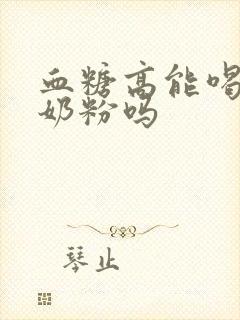 血糖高能喝
奶粉吗
琴止